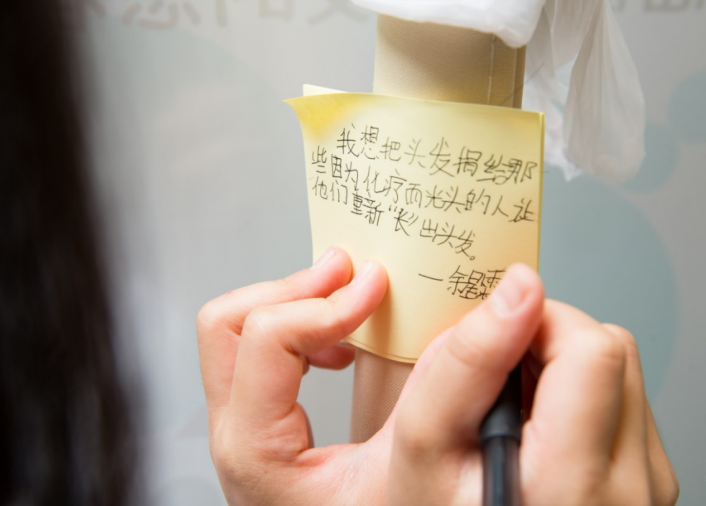 我想把头发捐给那
些因为化疗而光头的人让
他们重新“长”出头发。